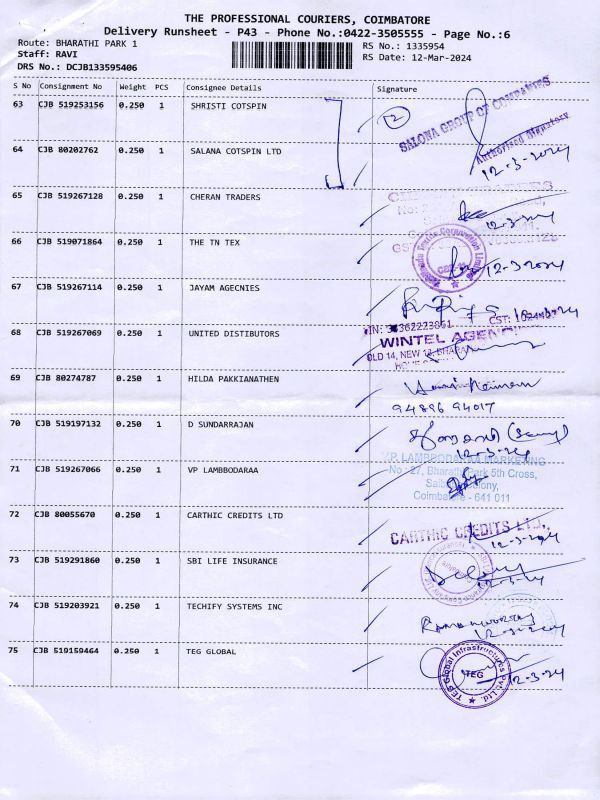 THE PROFESSIONAL COURIERS, COIMBATORE
Delivery Runsheet - P43 - Phone No.:0422-3505555 - Page No.:6
Route: BHARATHI PARK 1
RS No.: 1335954
Staff: RAVI
RS Date: 12-Mar-2024
DRS No.: DCJB133595406
S No Consignment No Weight PCS Consignee Details Signature
63 CJB 519253156 0.250 1 SHRISTI COTSPIN
SALONA GROUP OF COMPANIES
Authorised Signatory
64 CJB 80202762 0.250 1 SALANA COTSPIN LTD
12-3-2024
65 CJB 519267128 0.250 1 CHERAN TRADERS
66 CJB 519071864 0.250 1 THE TN TEX
12-3-2024
67 CJB 519267114 0.250 1 JAYAM AGECNIES
68 CJB 519267069 0.250 1 UNITED DISTIBUTORS
WINTEL AGENCI
OLD 14, NEW
69 CJB 80274787 0.250 1 HILDA PAKKIANATHEN
94896 94017
70 CJB 519197132 0.250 1 D SUNDARRAJAN
12-3-24
71 CJB 519267066 0.250 1 VP LAMBBODARAA
V.P. LAMBBODARAA MARKETING
No : 27, Bharathi Park 5th Cross,
Coimbatore - 641 011
72 CJB 80055670 0.250 1 CARTHIC CREDITS LTD
CARTHIC CREDITS LTD.,
12-3-24
73 CJB 519291860 0.250 1 SBI LIFE INSURANCE
12-3-24
74 CJB 519203921 0.250 1 TECHIFY SYSTEMS INC
75 CJB 519159464 0.250 1 TEG GLOBAL
TEG Global Infrastructures Pvt. Ltd.
TEG
12-3-24